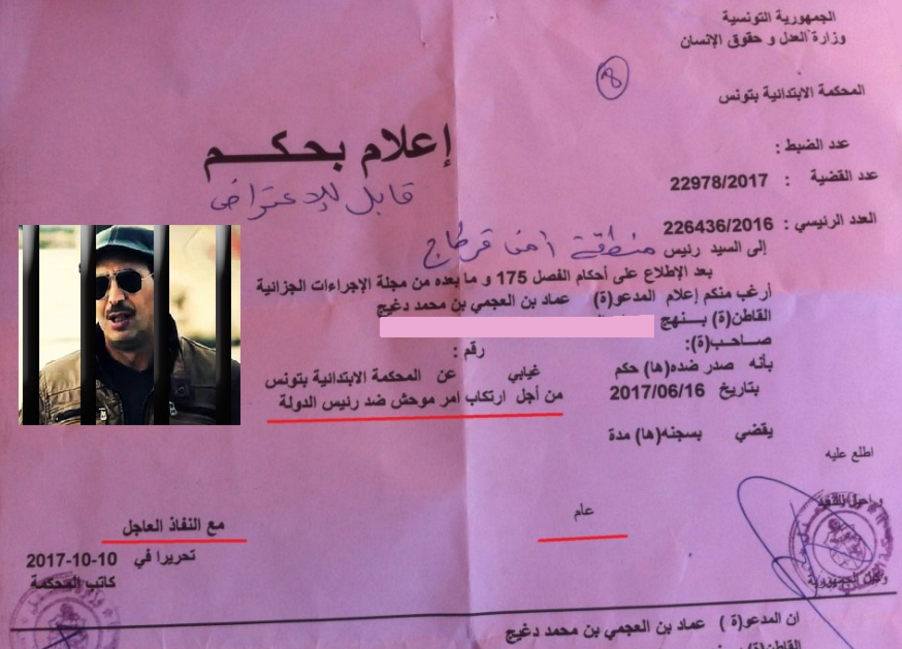 الجمهورية التونسية
وزارة العدل و حقوق الإنسان
8
المحكمة الابتدائية بتونس
عدد الضبط :
إعلام بحكم
عدد القضية : 22978/2017
قابل للإعتراض
العدد الرئيسي : 226436/2016
إلى السيد رئيس منطقة أمن قرطاج
بعد الإطلاع على أحكام الفصل 175 و ما بعده من مجلة الإجراءات الجزائية
أرغب منكم إعلام المدعو(ة) عماد بن العجمي بن محمد دغيج
القاطن(ة) بنهج
صاحب(ة): رقم :
بأنه صدر ضده(ها) حكم غيابي عن المحكمة الابتدائية بتونس
بتاريخ 2017/06/16 من أجل ارتكاب أمر موحش ضد رئيس الدولة
يقضي بسجنه(ها) مدة
اطلع عليه
عام
مع النفاذ العاجل
تحريرا في 10-10-2017
كاتب المحكمة
وكيل الجمهورية
ان المدعو(ة) عماد بن العجمي بن محمد دغيج
القاطن(ة)